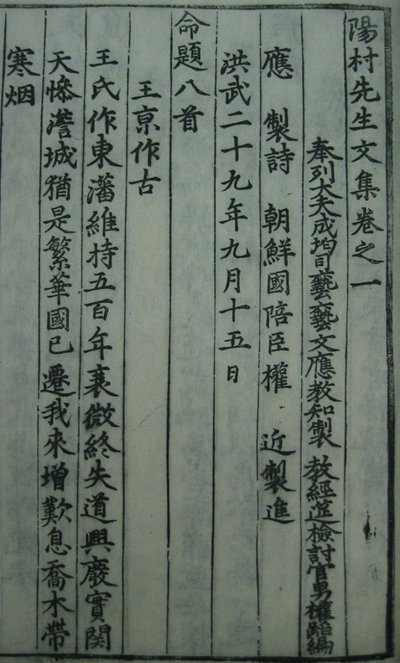 陽村先生文集卷之一
奉列大夫成均司藝藝文應教知製 教經筵檢討官男權蹈編
應 製詩 朝鮮國陪臣權 近製進
洪武二十九年九月十五日
命題八首
王京作古
王氏作東藩維持五百年衰微終失道興廢實関
天慘澹城猶是繁華國已遷我來增歎息喬木帶
寒烟